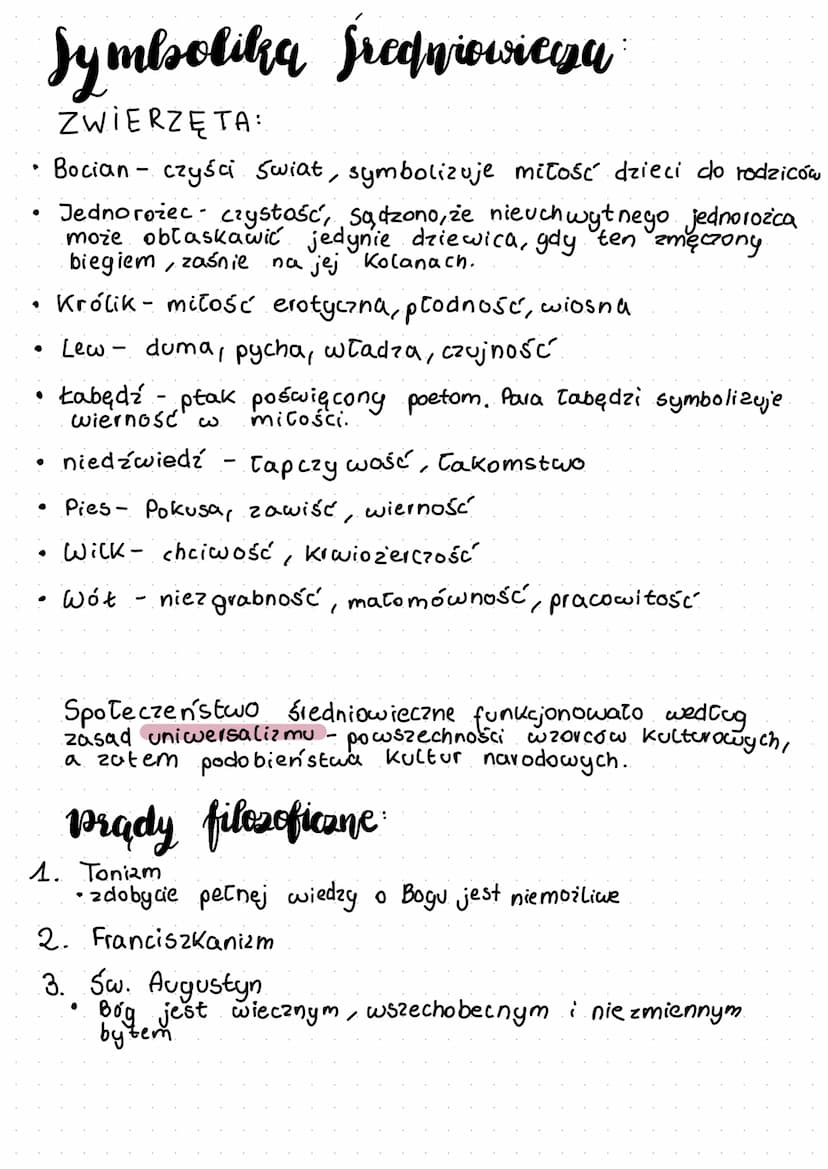 Symbolika średniowiecza:
ZWIERZĘTA:
• Bocian - czyści świat, symbolizuje miłość dzieci do rodziców
• Jednorożec - czystość, sądzono, że nieuchwytnego jednorożca
może obłaskawić jedynie dziewica, gdy ten zmęczony
biegiem, zaśnie na jej kolanach.
• Królik - miłość erotyczna, płodność, wiosna
• Lew - duma, pycha, władza, czujność
• Łabędź - ptak poświęcony poetom. Para łabędzi symbolizuje
wierność w miłości.
• niedźwiedź - łapczywość, łakomstwo
• Pies - Pokusa, zawiść, wierność
• Wilk - chciwość, krwiożerczość
• Wół - niezgrabność, małomówność, pracowitość
Społeczeństwo średniowieczne funkcjonowało według
zasad uniwersalizmu - powszechności wzorców kulturowych,
a zatem podobieństwa kultur narodowych.
Prądy filozoficzne:
1. Tonizm
• zdobycie pełnej wiedzy o Bogu jest niemożliwe
2. Franciszkanizm
3. Św. Augustyn
• Bóg jest wiecznym, wszechobecnym i niezmiennym
bytem